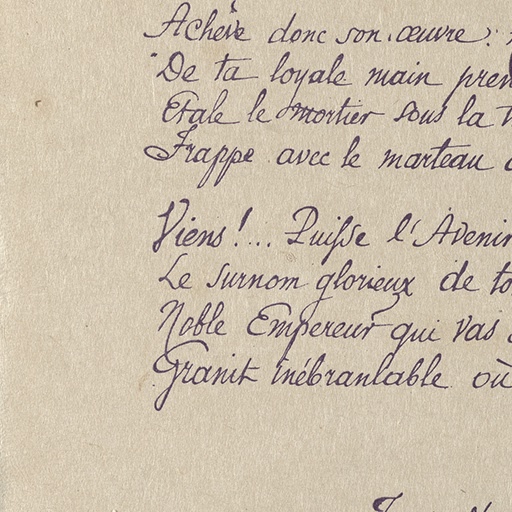 Achève donc son œuvre :
"De ta loyale main pren
Etale le mortier sous la t
Frappe avec le marteau
Viens !... Puisse l'Avenir
Le surnom glorieux de to
Noble Empereur qui vas
Granit inébranlable où